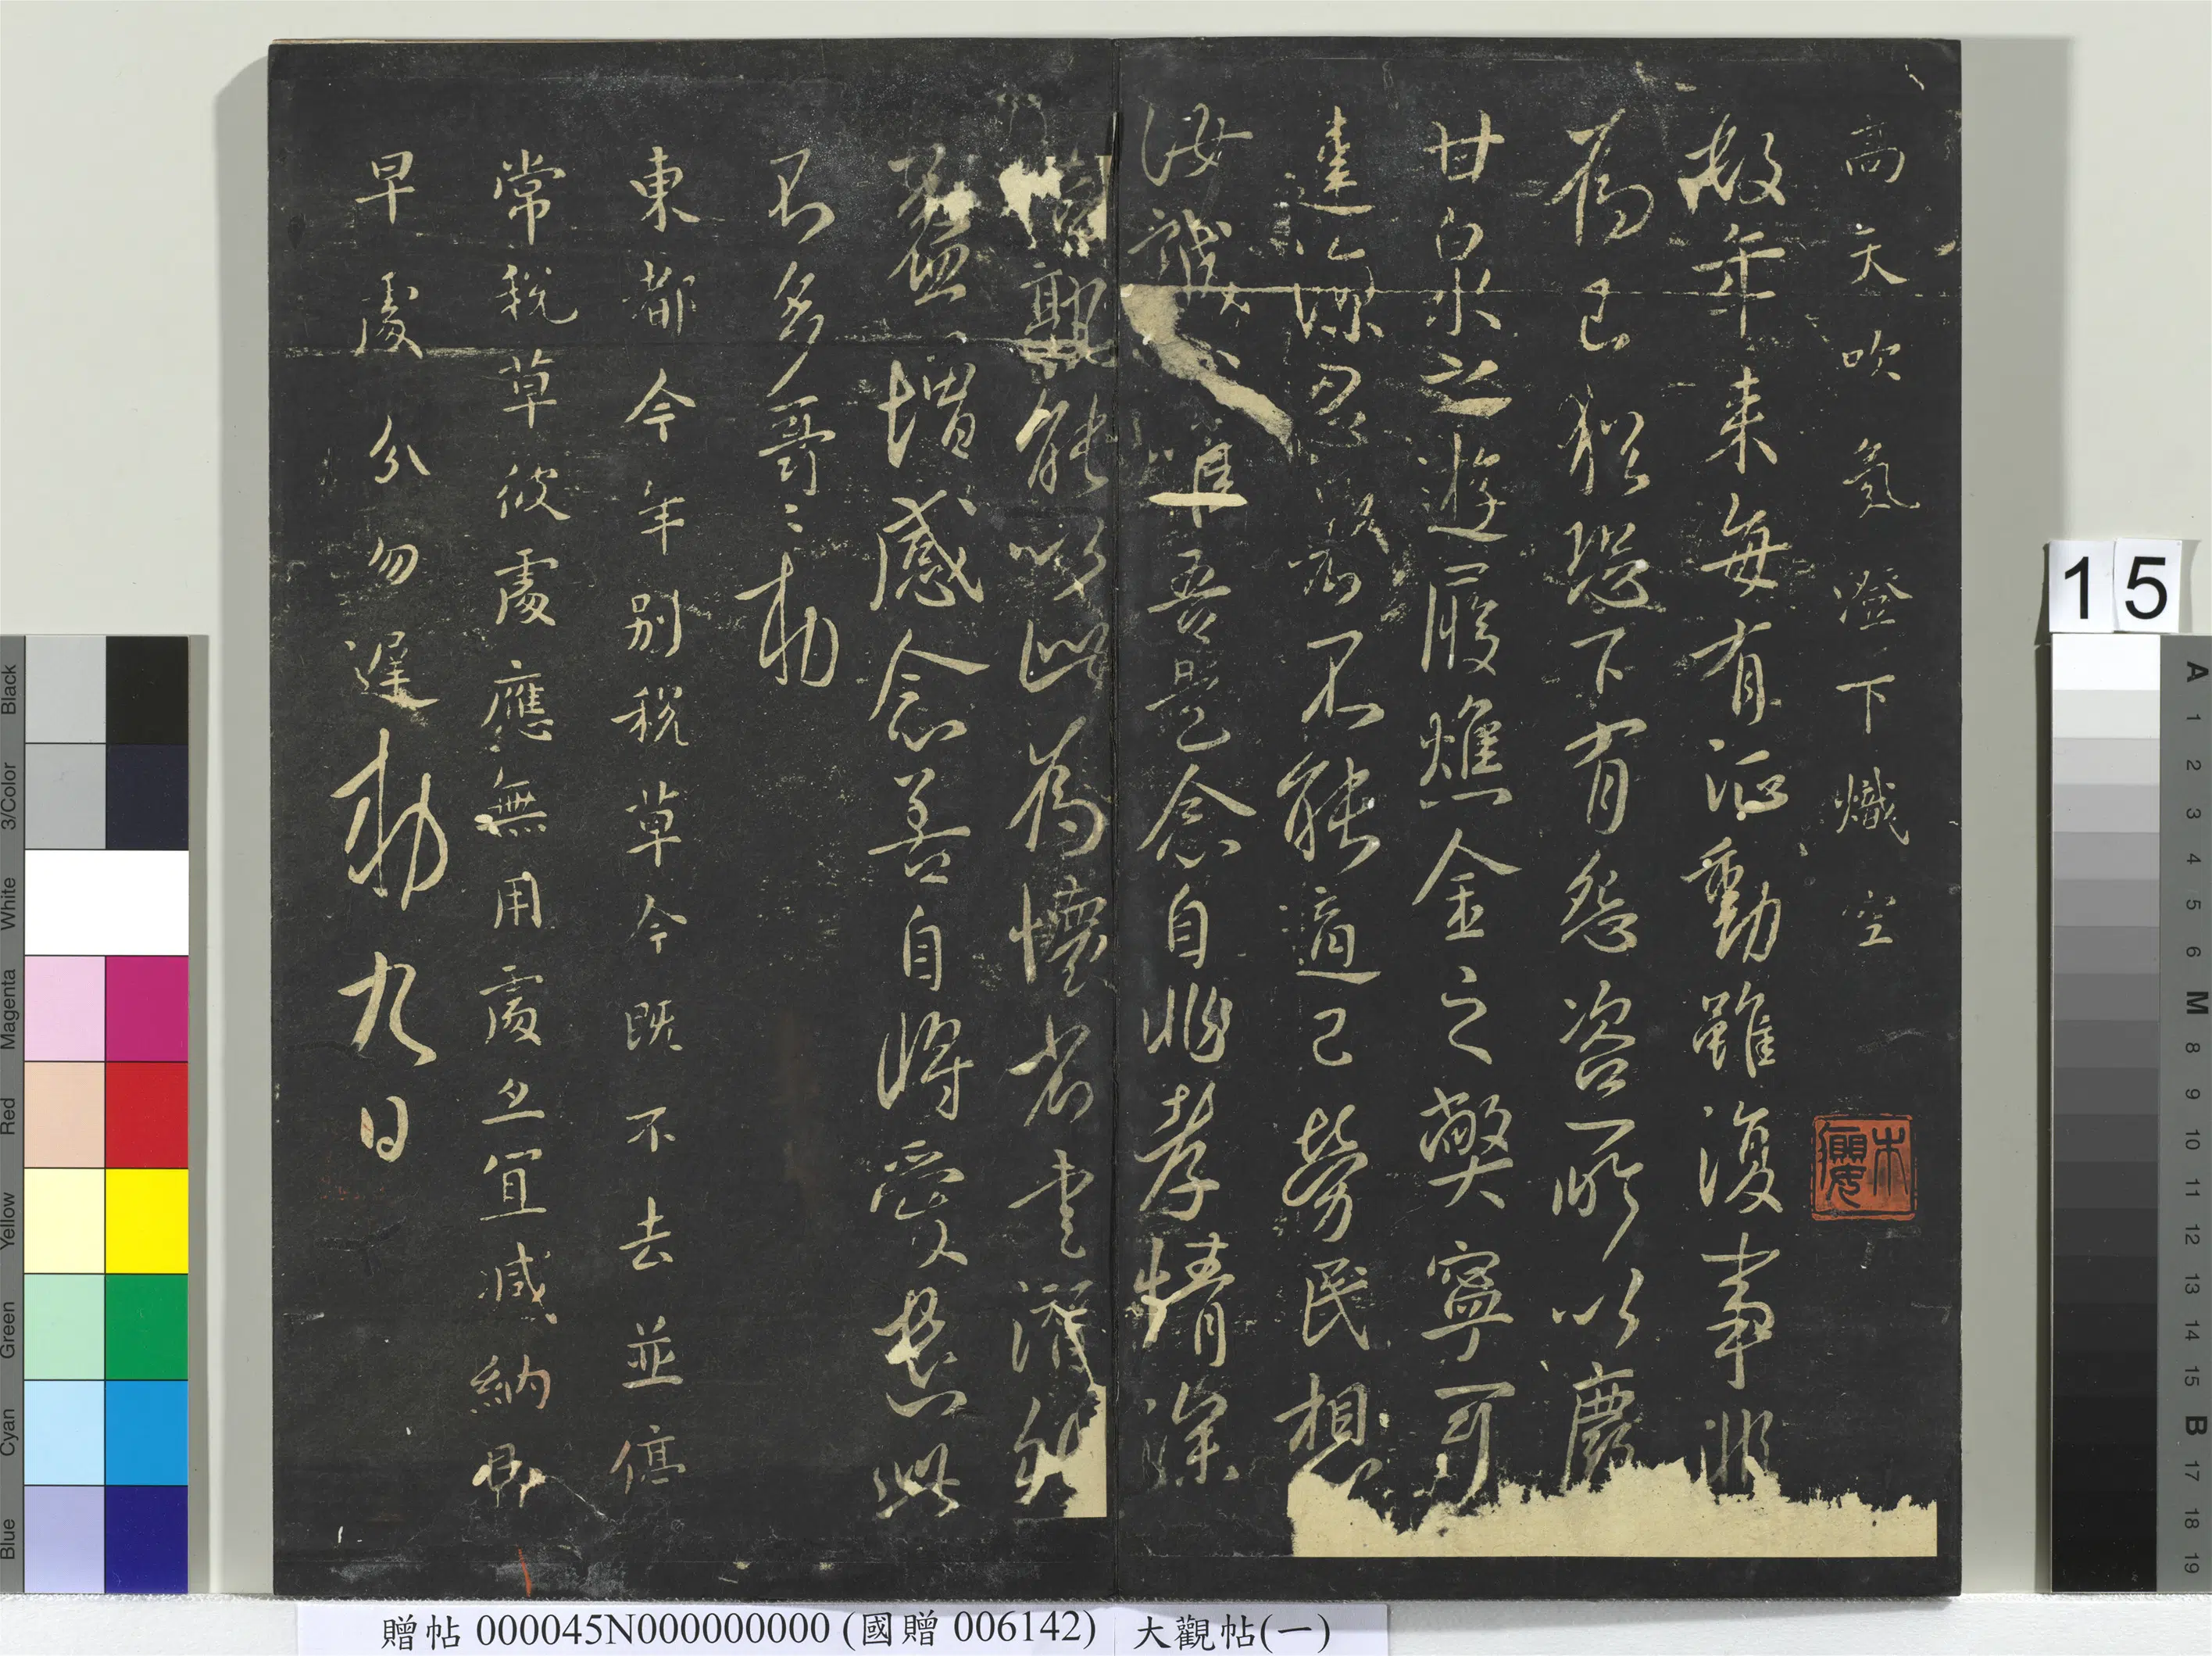 高天吹氣澄下熾空
數年來每有巡動雖復事非
為己猶恐下有怨咨所以廢
甘泉之遊履燋金之弊寧可
違涼忍不能適己勞民想
汝誠心準吾是念自非孝情深
篤孰能以此為懷省書潸然
益增感念善自將愛此
不多哥〻勅
東都今年別稅草今既不去並停
常稅草彼處應無用處亦宜減納即
早處分勿遲勅九日
15
Blue Cyan Green Yellow Red Magenta White 3/Color Black
A 1 2 3 4 5 6 M 8 9 10 11 12 13 14 15 B 17 18 19
贈帖 000045N000000000 (國贈 006142) 大觀帖(一)